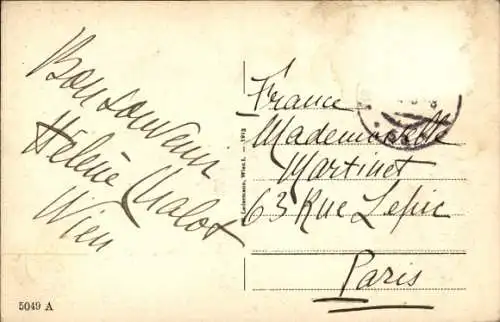 Bon Souvenir
Hélène Malot
Wien
France
Mademoiselle
Martinet
63 Rue Lepic
Paris
Ledermann, Wien I. — 1913
5049 A